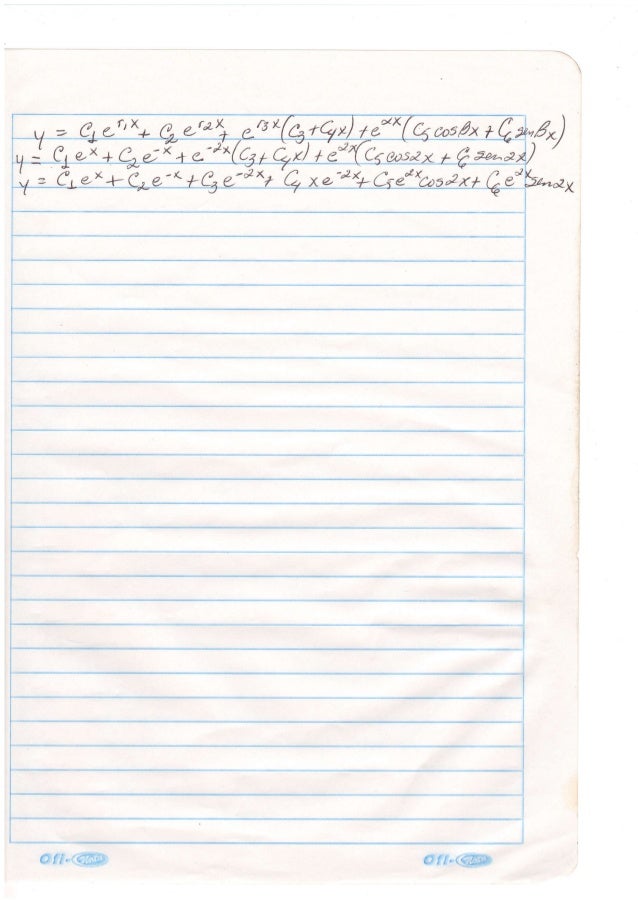 y = C₁e^{r₁x} + C₂e^{r₂x} + e^{r₃x}(C₃+C₄x) + e^{αx}(C₅cosβx + C₆senβx)
y = C₁e^x + C₂e^{-x} + e^{-2x}(C₃+C₄x) + e^{2x}(C₅cos2x + C₆sen2x)
y = C₁e^x + C₂e^{-x} + C₃e^{-2x} + C₄xe^{-2x} + C₅e^{2x}cos2x + C₆e^{2x}sen2x